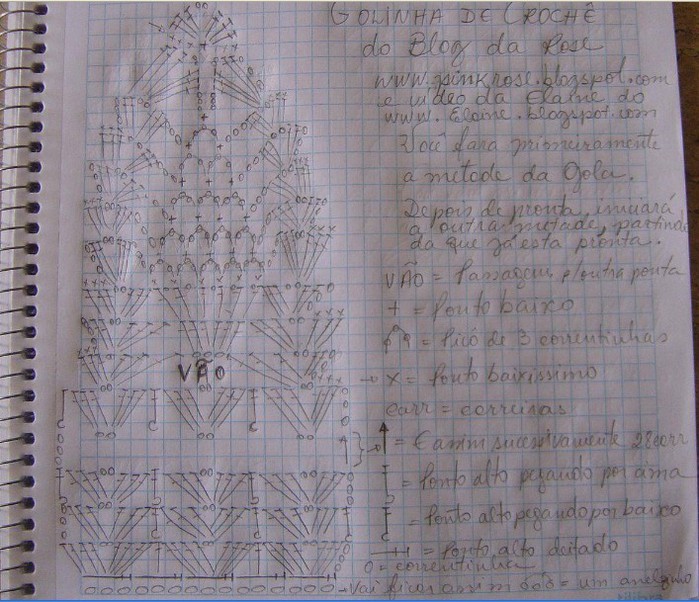 GOLINHA DE CROCHÊ
do Blog da Rose
www.pinkrose.blogspot.com
e vídeo da Elaine do
www. Elaine.blogspot.com
Você fara primeiramente
a metade da Gola.
Depois de pronta, iniciará
a outra metade, partindo
da que já esta pronta.
VÃO = Passagem p/outra ponta
+ = Ponto baixo
= Picô de 3 correntinhas
VÃO
→ x = Ponto baixíssimo
carr = carreiras
= E assim sucessivamente 28carr
= Ponto alto pegando por cima
= Ponto alto pegando por baixo
= Ponto alto deitado
0 = correntinha
→ Vai ficar assim = um anelzinho